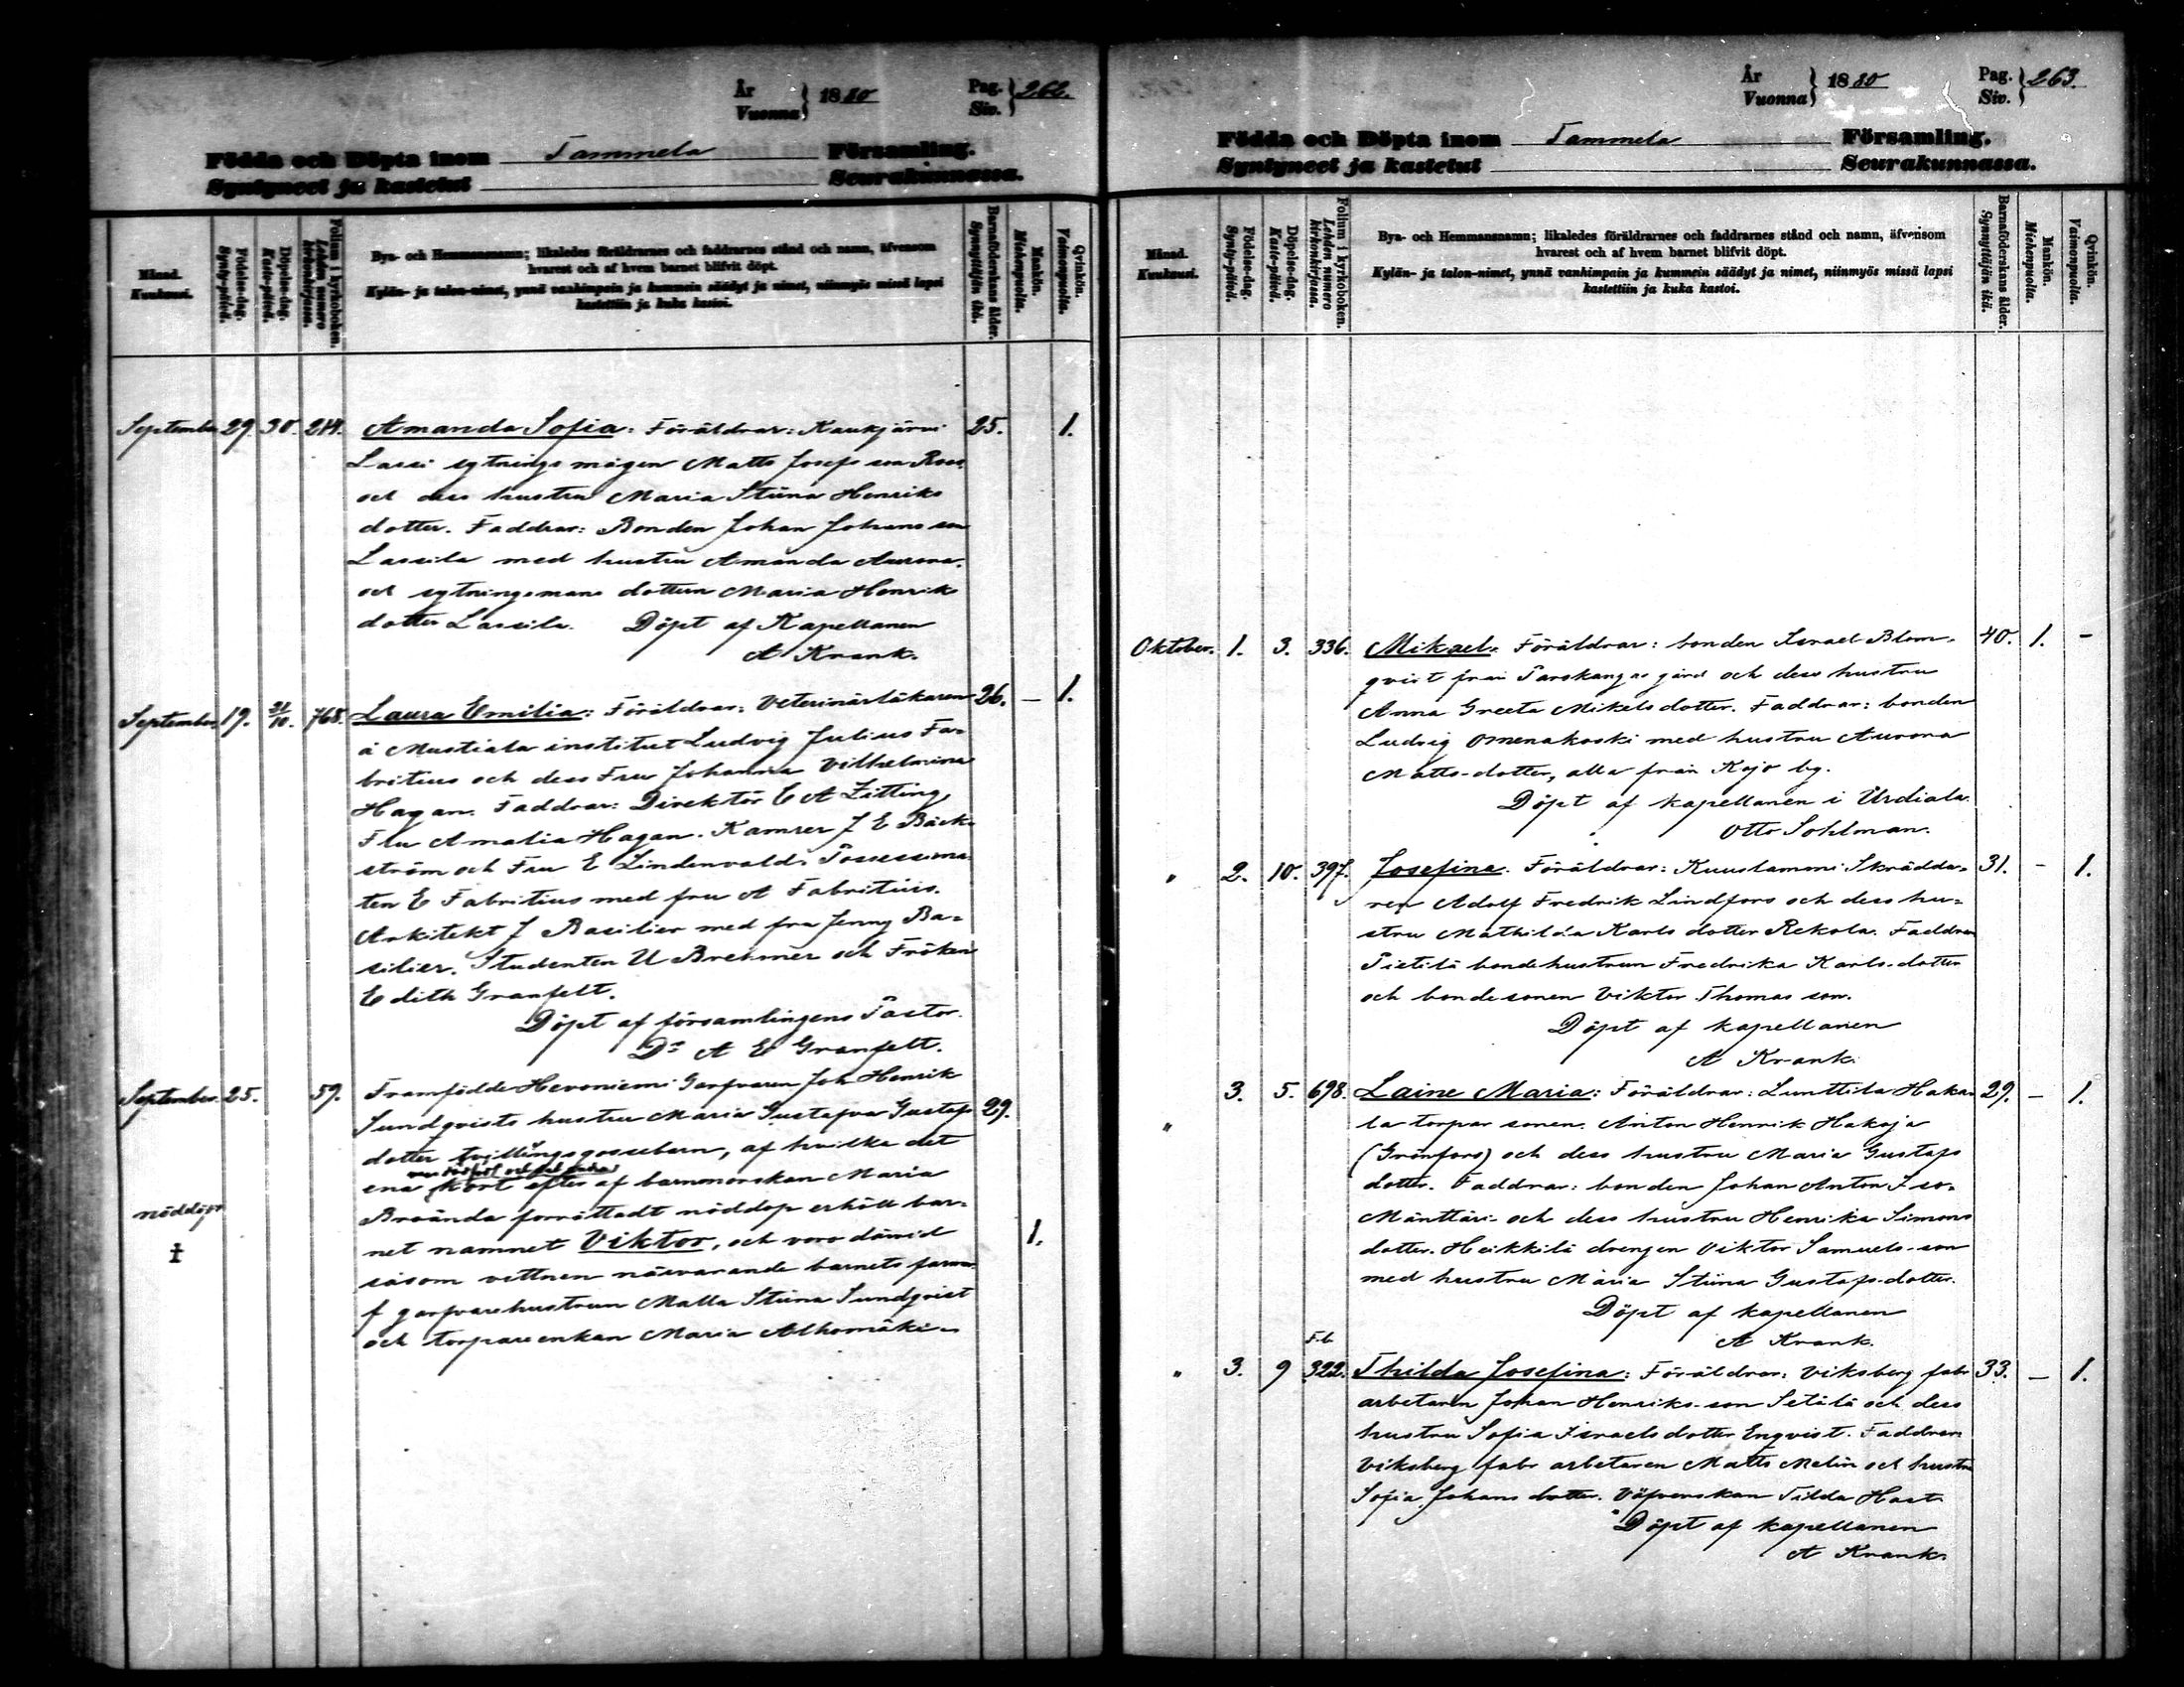 År
Vuonna } 1880
Pag.
Siv. } 262.
Födda och Döpta inom Tammela Församling.
Syntyneet ja kastetut Seurakunnassa.
Månad.
Kuukausi.
Födelse-dag.
Synty-päivä.
Döpelse-dag.
Kaste-päivä.
Folium i kyrkoboken.
Lehden numero
kirkonkirjassa.
Bya- och Hemmansnamn; likaledes föräldrarnes och faddrarnes stånd och namn, äfvensom
hvarest och af hvem barnet blifvit döpt.
Kylän- ja talon-nimet, ynnä vanhimpain ja kummein säädyt ja nimet, niinmyös missä lapsi
kastettiin ja kuka kastoi.
Barnaföderskans ålder.
Synnyttäjän ikä.
Mankön.
Miehenpuolta.
Qvinkön.
Vaimonpuolta.
September 29. 30. 214. Amanda Sofia: Föräldrar: Kaukjärvi 25. 1.
Lassi sytnings mågen Matts Josefs son Roos
och dess hustru Maria Stiina Henriks
dotter. Faddrar: Bonden Johan Johans son
Lassila med hustru Amanda Aurora.
och sytningsmans dottern Maria Henriks
dotter Lassila. Döpt af Kapellanen
A Krank.
September. 19. 21/10. 768. Laura Emilia: Föräldrar: Veterinärläkaren 26. — 1.
å Mustiala institut Ludvig Julius Fa-
britius och dess Fru Johanna Vilhelmina
Hagan. Faddrar: Direktör E A Zitting,
Fru Amalia Hagan. Kamrer J E Bäck-
ström och Fru E Lindenvald. Possessiona-
ten E Fabritius med fru A Fabritius.
Arkitekt J Basilier med fru Jenny Ba-
silier. Studenten U Bremer och Fröken
Edith Granfelt.
Döpt af församlingens Pastor.
Dr A E Granfelt.
September. 25. 59. Framfödde Hevoniemi Garfvaren Joh Henrik
Sundqvists hustru Maria Gustafva Gustafs 29.
dotter tvillingsgossebarn, af hvilka det
ena kort efter af barnmorskan Maria
nöddöpt Broända förrättadt nöddop erhöll bar-
net namnet Viktor, och voro dävid 1.
såsom vittnen närvarande barnets farmor
f garfvarehustrun Malla Stiina Sundqvist
och torpareenkan Maria Alhomäki.
År
Vuonna } 1880
Pag.
Siv. } 263.
Födda och Döpta inom Tammela Församling.
Syntyneet ja kastetut Seurakunnassa.
Månad.
Kuukausi.
Födelse-dag.
Synty-päivä.
Döpelse-dag.
Kaste-päivä.
Folium i kyrkoboken.
Lehden numero
kirkonkirjassa.
Bya- och Hemmansnamn; likaledes föräldrarnes och faddrarnes stånd och namn, äfvensom
hvarest och af hvem barnet blifvit döpt.
Kylän- ja talon-nimet, ynnä vanhimpain ja kummein säädyt ja nimet, niinmyös missä lapsi
kastettiin ja kuka kastoi.
Barnaföderskans ålder.
Synnyttäjän ikä.
Mankön.
Miehenpuolta.
Qvinkön.
Vaimonpuolta.
Oktober. 1. 3. 336. Mikael. Föräldrar: bonden Israel Blom- 40. 1. -
qvist från gård och dess hustru
Anna Greeta Mikels dotter. Faddrar: bonden
Ludvig Omenakoski med hustru Aurora
Matts-dotter, alla från Kojo by.
Döpt af kapellanen i Urdiala
Otto Sohlman.
" 2. 10. 397. Josefina. Föräldrar: Kuuslammi Skrädda- 31. - 1.
ren Adolf Fredrik Lindfors och dess hu-
stru Mathilda Karls dotter Rekola. Faddrar
Pietilä bondehustrun Fredrika Karls-dotter
och bondesonen Viktor Thomas son.
Döpt af kapellanen
A Krank.
" 3. 5. 698. Laine Maria: Föräldrar: Lunttila Haka- 29. - 1.
la torpar sonen. Anton Henrik Hakoja
(Grönfors) och dess hustru Maria Gustafs
dotter. Faddrar: bonden Johan Anton Iso-
Mänttäri och dess hustru Henrika Simons
dotter. Heikkilä drengen Viktor Samuels-son
med hustru Maria Stiina Gustafs-dotter.
Döpt af kapellanen
A Krank.
F.b.
" 3. 9 322. Thilda Josefina: Föräldrar: Viksberg fabr 33. — 1.
arbetaren Johan Henriks-son Setälä och dess
hustru Sofia Israels dotter Enqvist. Faddrar
Viksberg fabr arbetaren Matts Melin och hustru
Sofia Johans dotter. Väfverskan Tilda Hast
Döpt af kapellanen
A Krank.